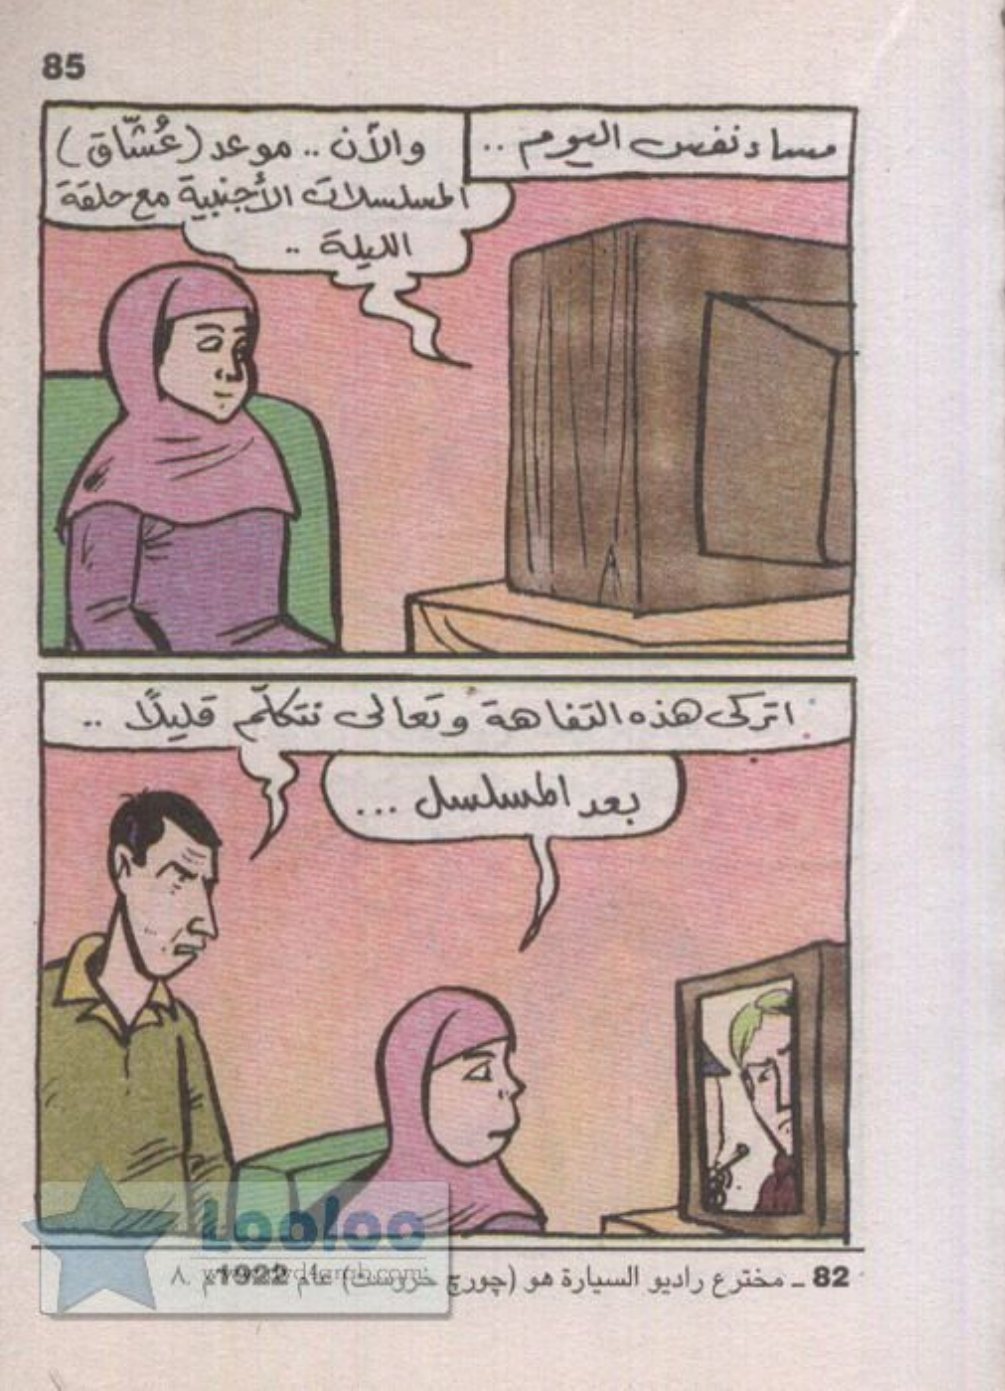 85
مساء نفس اليوم ..
والآن .. موعد (عُشّاق)
المسلسلات الأجنبية مع حلقة
الليلة ..
اتركى هذه التفاهة وتعالى نتكلّم قليلًا ..
بعد المسلسل ...
82 ـ مخترع راديو السيارة هو (چورچ فروست) عام 1922م .
Looloo